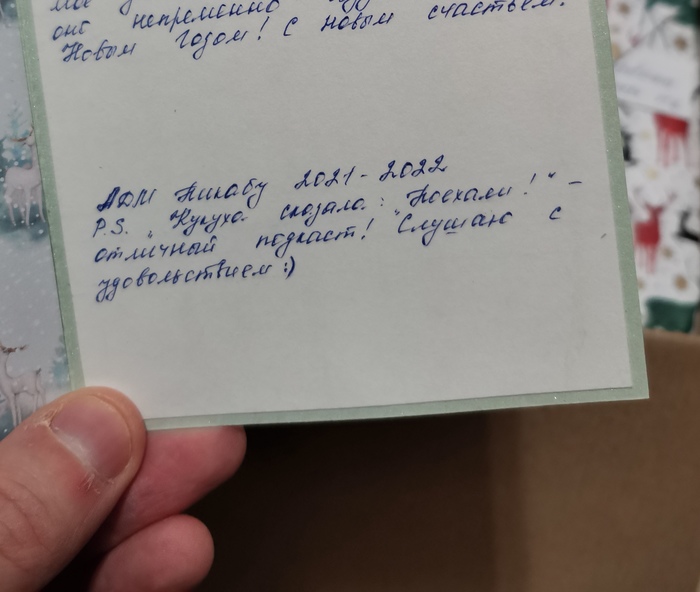 оно непременно
Новым годом! С новым счастьем!
АДМ Пикабу 2021-2022
P.S. „Кукуха сказала: Поехали!" –
отличный подкаст! Слушаю с
удовольствием :)